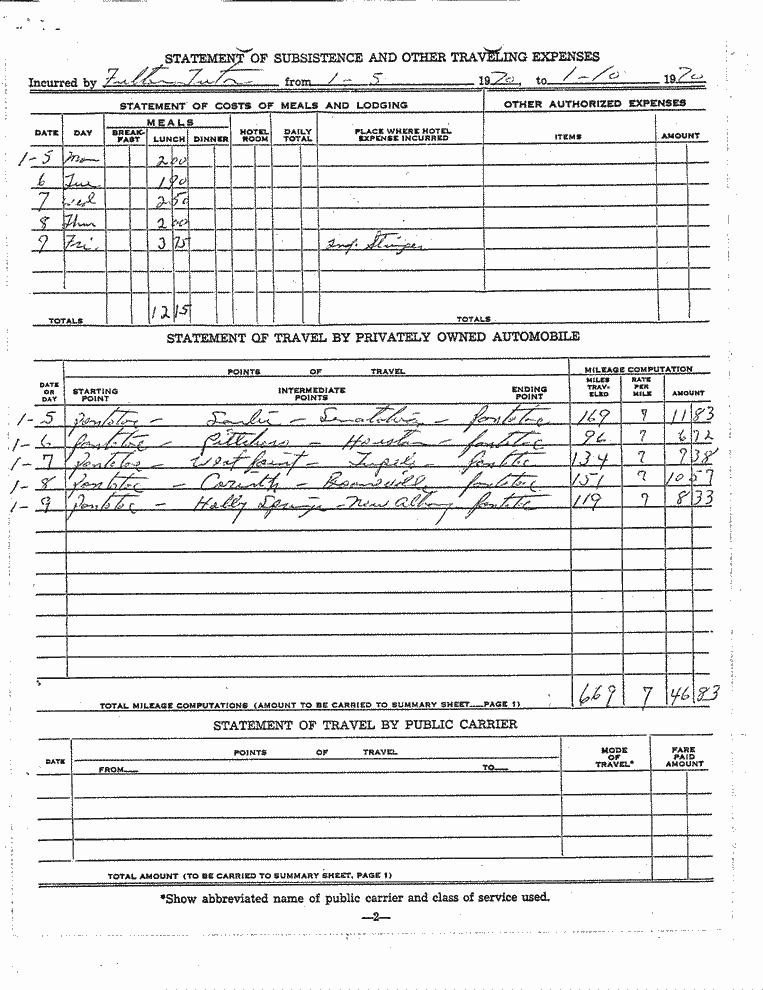 STATEMENT OF SUBSISTENCE AND OTHER TRAVELING EXPENSES
Incurred by Fulton Tutor from 1-5 1970, to 1-10 1970
STATEMENT OF COSTS OF MEALS AND LODGING OTHER AUTHORIZED EXPENSES
MEALS
DATE DAY BREAK-FAST LUNCH DINNER HOTEL ROOM DAILY TOTAL PLACE WHERE HOTEL EXPENSE INCURRED ITEMS AMOUNT
1-5 Mon 2 00
6 Tue 1 90
7 Wed 2 50
8 Thur 2 00
9 Fri. 3 75
TOTALS 12 15 TOTALS
STATEMENT OF TRAVEL BY PRIVATELY OWNED AUTOMOBILE
POINTS OF TRAVEL MILEAGE COMPUTATION
DATE OR DAY STARTING POINT INTERMEDIATE POINTS ENDING POINT MILES TRAV-ELED RATE PER MILE AMOUNT
1-5 Pontotoc - Sardis - Senatobia - Pontotoc 169 7 11 83
1-6 Pontotoc - Pittsboro - Houston - Pontotoc 96 7 6 72
1-7 Pontotoc - West Point - Tupelo - Pontotoc 134 7 9 38
1-8 Pontotoc - Corinth - Booneville Pontotoc 151 7 10 57
1-9 Pontotoc - Holly Springs - New Albany Pontotoc 119 7 8 33
TOTAL MILEAGE COMPUTATIONS (AMOUNT TO BE CARRIED TO SUMMARY SHEET__PAGE 1) 669 7 46 83
STATEMENT OF TRAVEL BY PUBLIC CARRIER
DATE POINTS OF TRAVEL MODE OF TRAVEL* FARE PAID AMOUNT
FROM__ TO__
TOTAL AMOUNT (TO BE CARRIED TO SUMMARY SHEET, PAGE 1)
*Show abbreviated name of public carrier and class of service used.
—2—